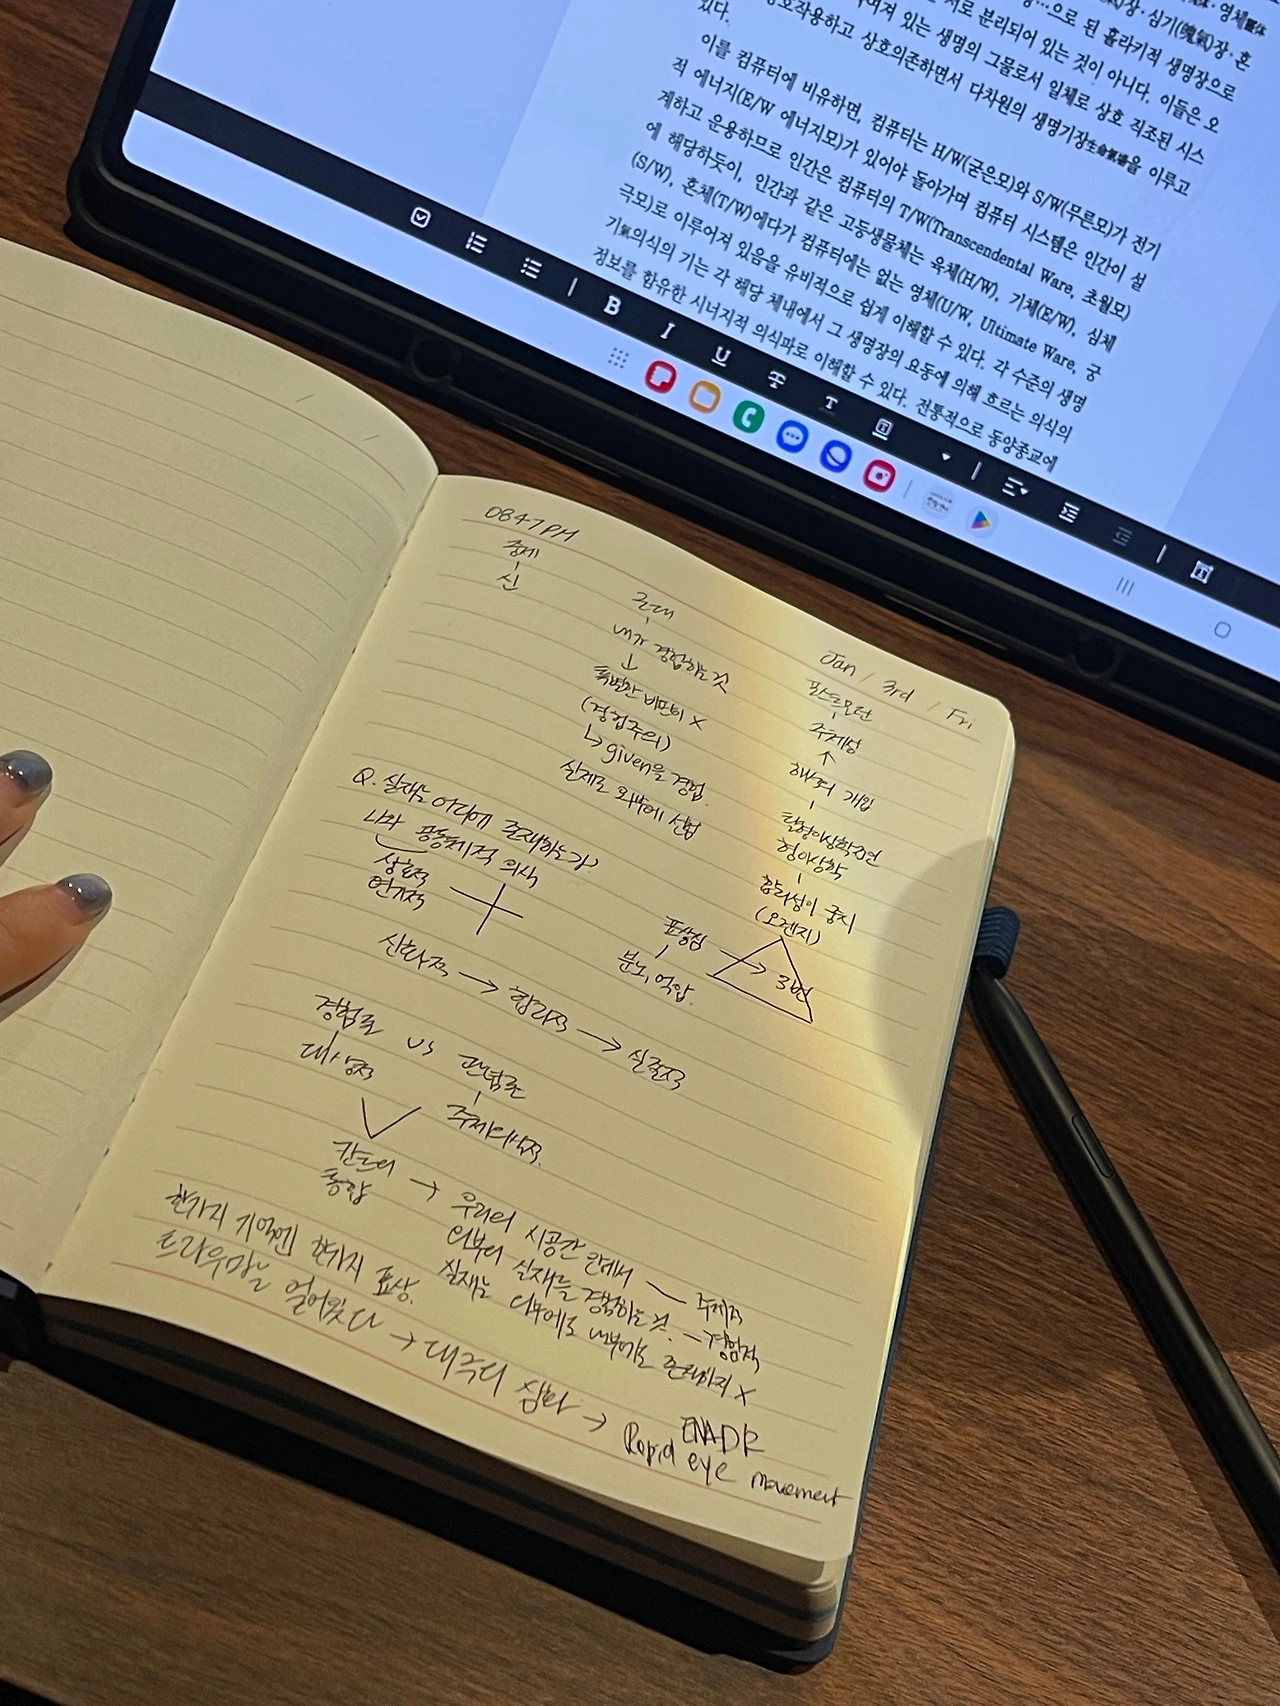 장·심기(魄氣)장·혼
·영체靈體
으로 된 홀라키적 생명장으로
서로 분리되어 있는 것이 아니다. 이들은 오
여져 있는 생명의 그물로서 일체로 상호 직조된 시스
상호작용하고 상호의존하면서 다차원의 생명기장生命氣場을 이루고
있다.
이를 컴퓨터에 비유하면, 컴퓨터는 H/W(굳은모)와 S/W(무른모)가 전기
적 에너지(E/W 에너지모)가 있어야 돌아가며 컴퓨터 시스템은 인간이 설
계하고 운용하므로 인간은 컴퓨터의 T/W(Transcendental Ware, 초월모)
에 해당하듯이, 인간과 같은 고등생물체는 육체(H/W), 기체(E/W), 심체
(S/W), 혼체(T/W)에다가 컴퓨터에는 없는 영체(U/W, Ultimate Ware, 궁
극모)로 이루어져 있음을 유비적으로 쉽게 이해할 수 있다. 각 수준의 생명
기氣의식의 기는 각 해당 체내에서 그 생명장의 요동에 의해 흐르는 의식의
정보를 함유한 시너지적 의식파로 이해할 수 있다. 전통적으로 동양종교에
B I U T T
0847PM
Jan / 3rd / Fri
중세
신
근대
내가 경험하는 것
↓
특별한 비판이 X
(경험주의)
↳ given을 경험.
실제로 외부에 선험
포스트모던
주체성
↑
해석의 개입
탈형이상학
형이상학
합리성이 중지
(오렌지)
Q. 실재는 어디에 존재하는가?
나와 공동체적 의식
상호적
연기적
표상심 → 3번
분노, 억압.
신화적 → 합리적 → 실존적
경험론 vs 관념론
대상적
주체의 상적.
칸트의
종합
→ 우리의 시공간 안에서 — 주체적
외부의 실재를 경험하는 것. — 경험적
실재는 외부에도 내부에도 존재하지 X
한가지 기억엔 한가지 표상.
트라우마는 얼어있다 → 대극의 심화 → EMDR
Rapid eye movement